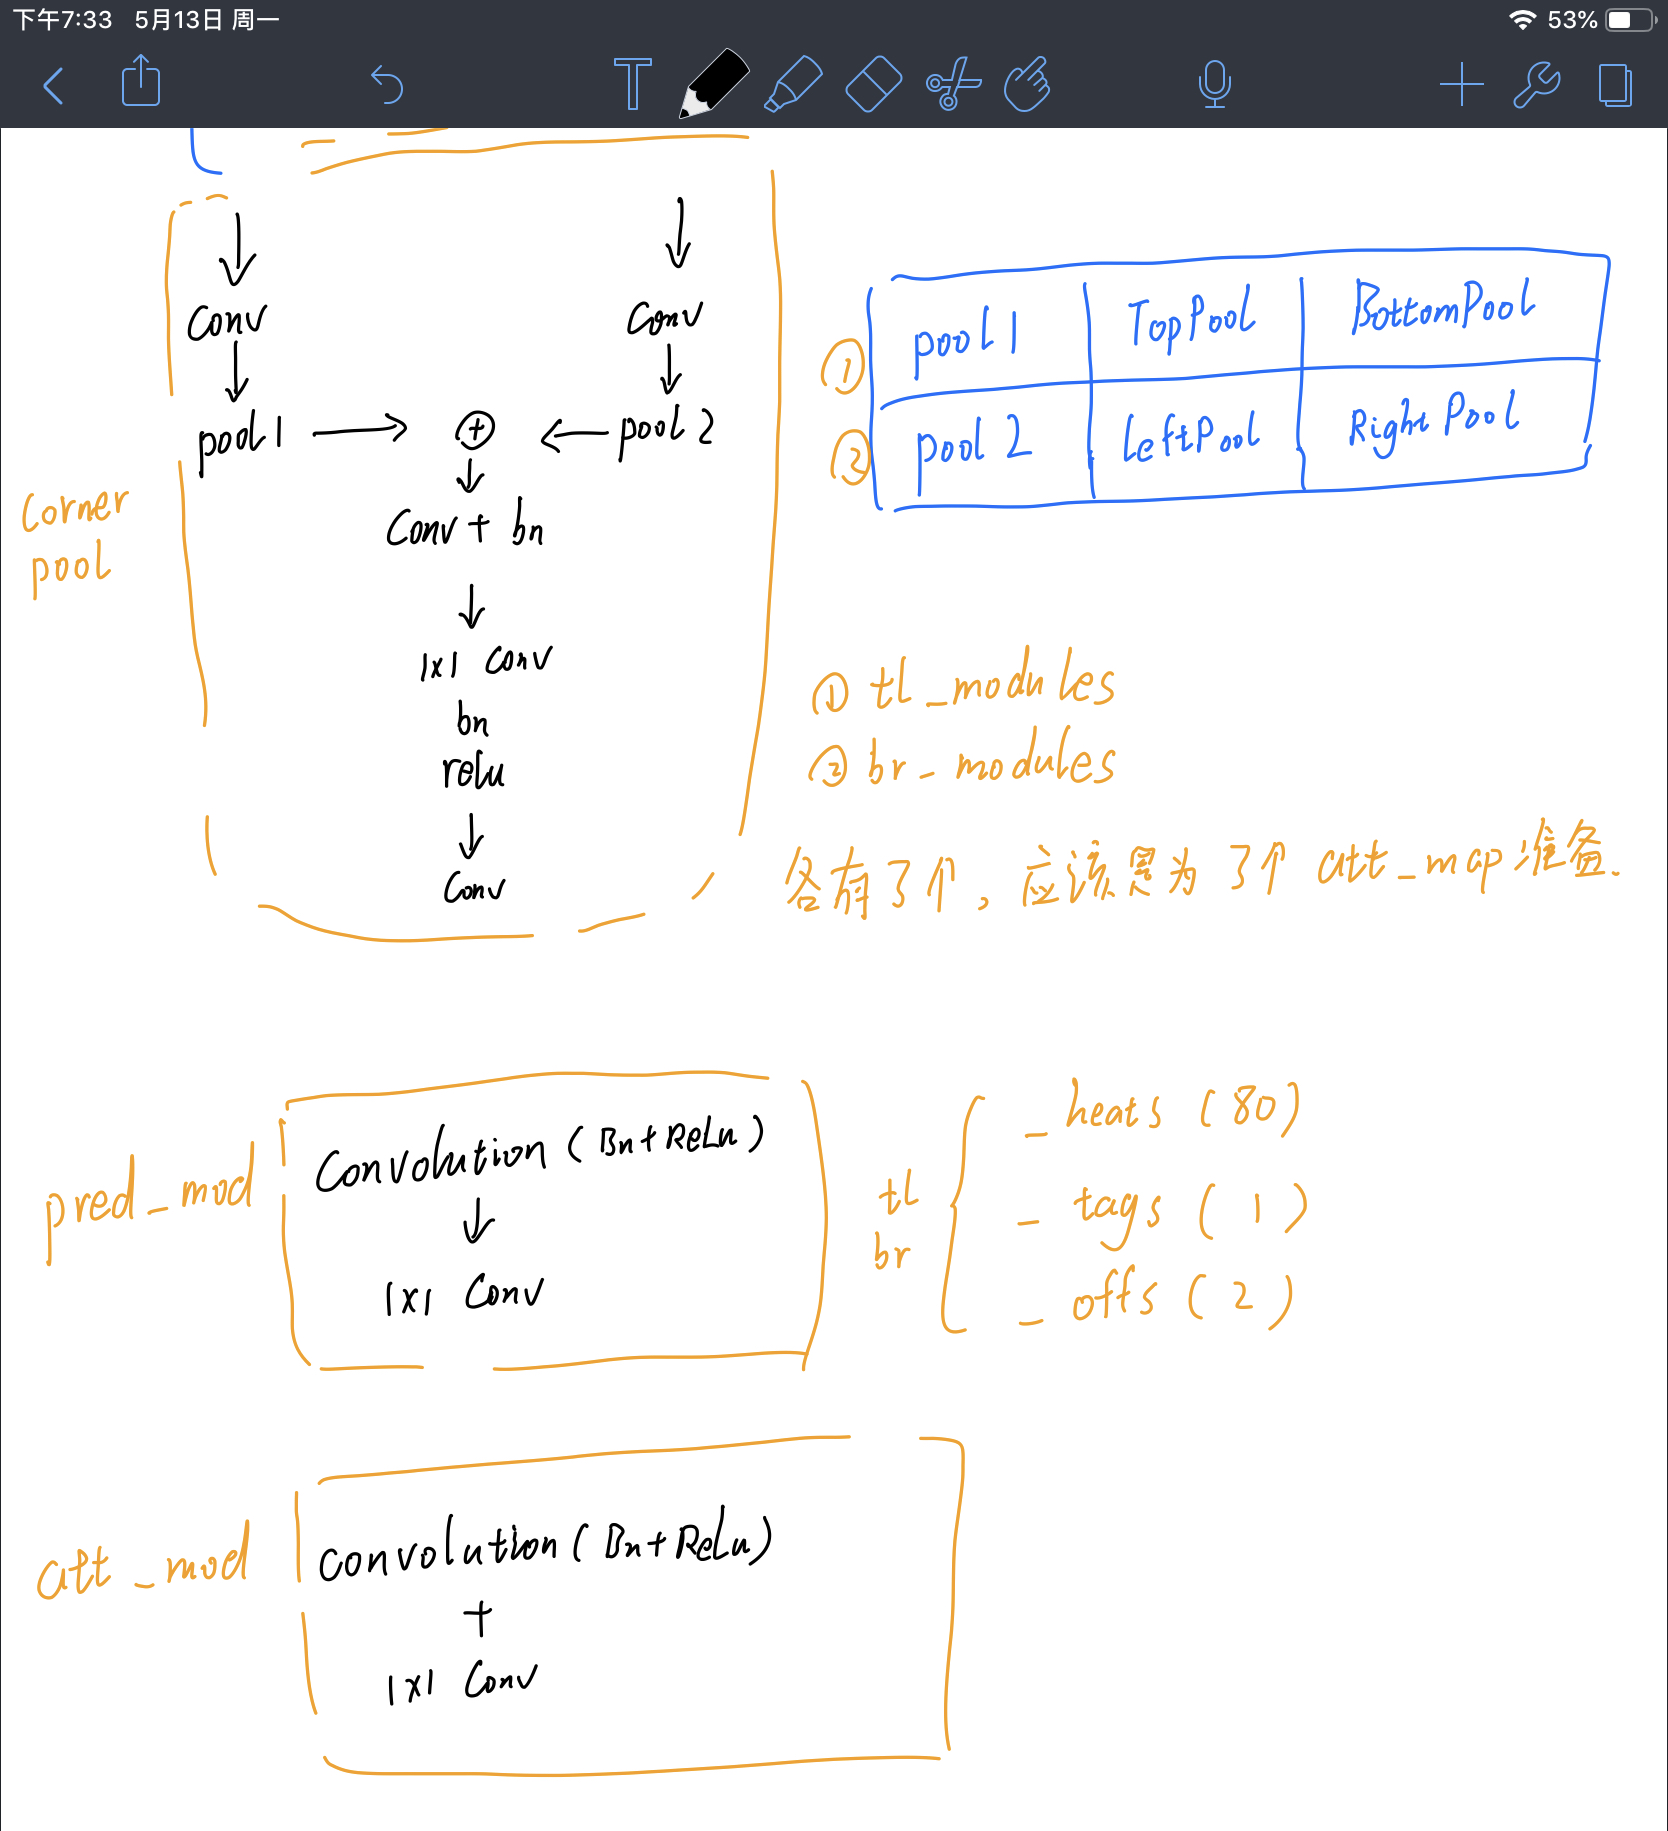 下午7:33 5月13日 周一 53%
Conv Conv
pool1 → ⊕ ← pool2
Conv + bn
1x1 Conv
bn
relu
Conv
Corner
pool
① pool1 TopPool BottomPool
② pool2 LeftPool RightPool
① tl_modules
② br_modules
各有了个，应该是为了个 att_map准备.
pred_mod
Convolution (Bn+ReLu)
1x1 Conv
tl
br
_heats (80)
_tags (1)
_offs (2)
att_mod
convolution (Bn+ReLu)
+
1x1 Conv